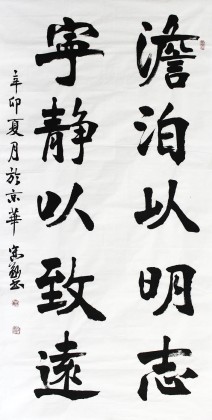 澹泊以明志
寧静以致遠
辛卯夏月於京華